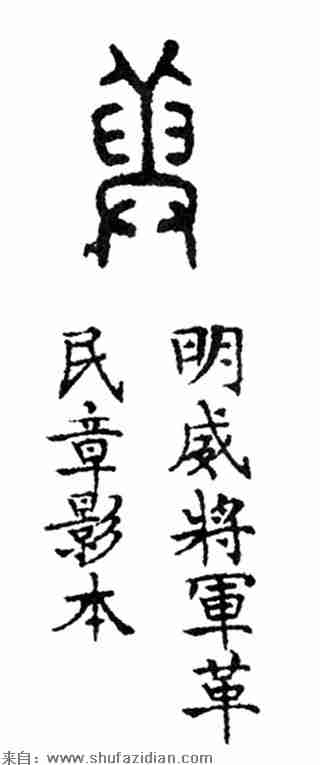 明威將軍革
民章影本
来自：www.shufazidian.com